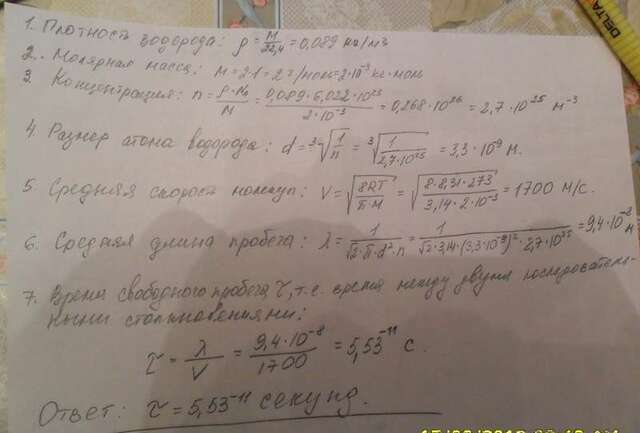 1. Плотность водорода: ρ = M/22,4 = 0,089 кг/м3
2. Молярная масса: M = 2·1 = 2 г/моль = 2·10⁻³ кг·моль
3. Концентрация: n = ρ·Na/M = 0,089·6,022·10²³/2·10⁻³ = 0,268·10²⁶ = 2,7·10²⁵ м⁻³
4. Размер атома водорода: d = ³√1/n = ³√1/2,7·10²⁵ = 3,3·10⁹ м.
5. Средняя скорость молекул: V = √8RT/π·M = √8·8,31·273/3,14·2·10⁻³ = 1700 м/с.
6. Средняя длина пробега: λ = 1/√2·π·d²·n = 1/√2·3,14·(3,3·10⁻⁹)²·2,7·10²⁵ = 9,4·10⁻⁸ м
7. Время свободного пробега τ, т.е. время между двумя последователь-
ными столкновениями:
τ = λ/V = 9,4·10⁻⁸/1700 = 5,53⁻¹¹ с.
Ответ: τ = 5,53⁻¹¹ секунд.
DELTA